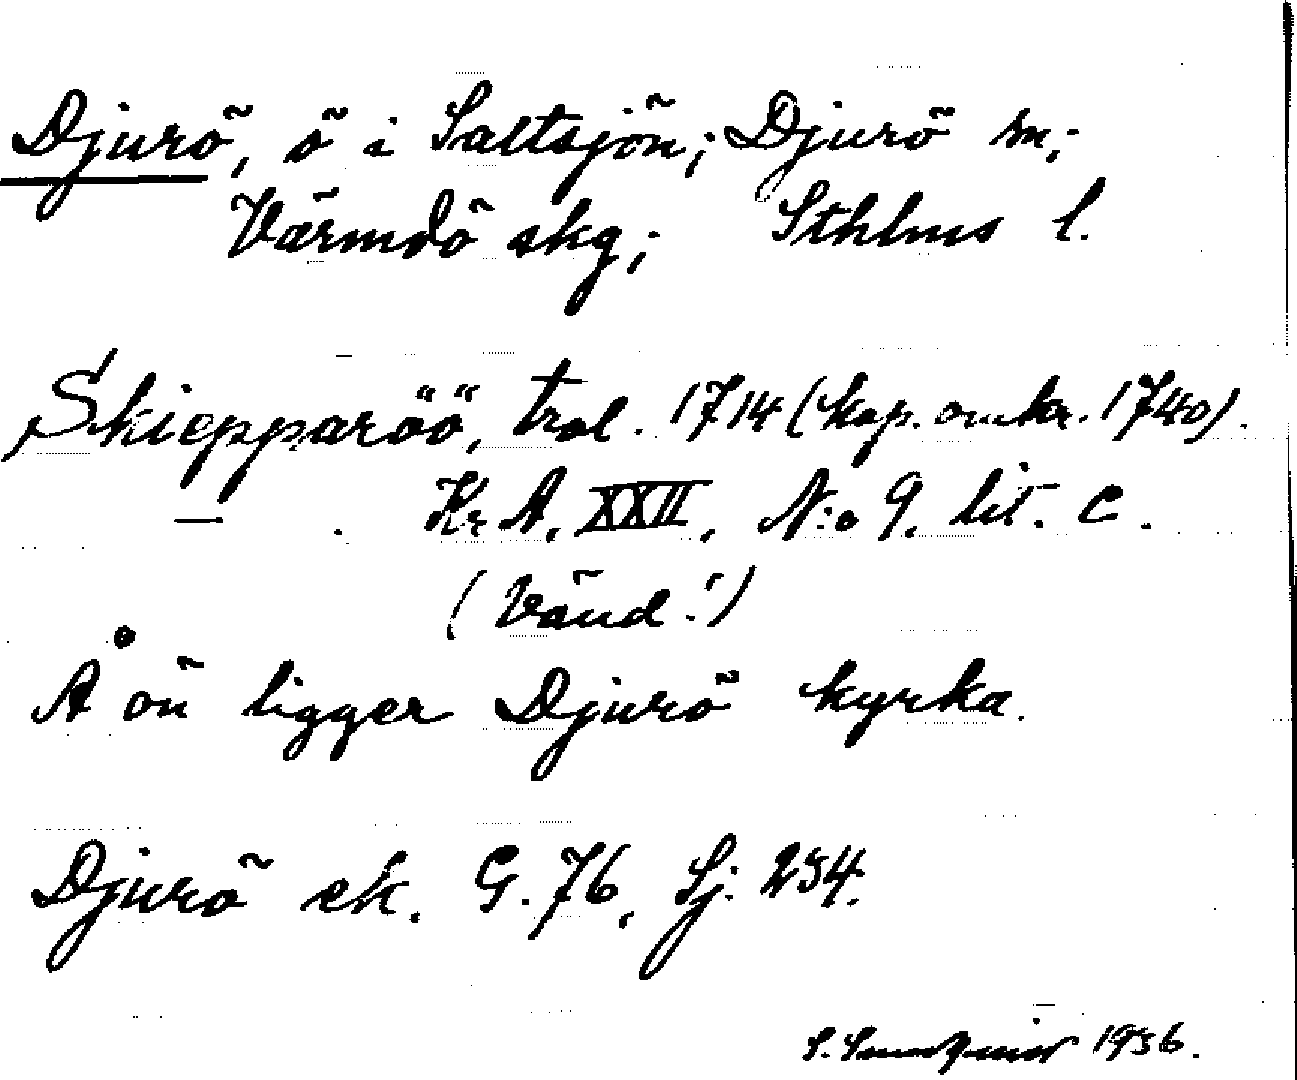 Djurö, ö i Saltsjön; Djurö sn;
Värmdö skg; Sthlms l.
Skiepparöö, trol. 1714 (kop. omkr. 1740).
— . Kr A. XXII, N:o 9. lit. C.
(Vänd!)
Å ön ligger Djurö kyrka.
Djurö ek. G. 76, Sj: 254.
S. 1956.